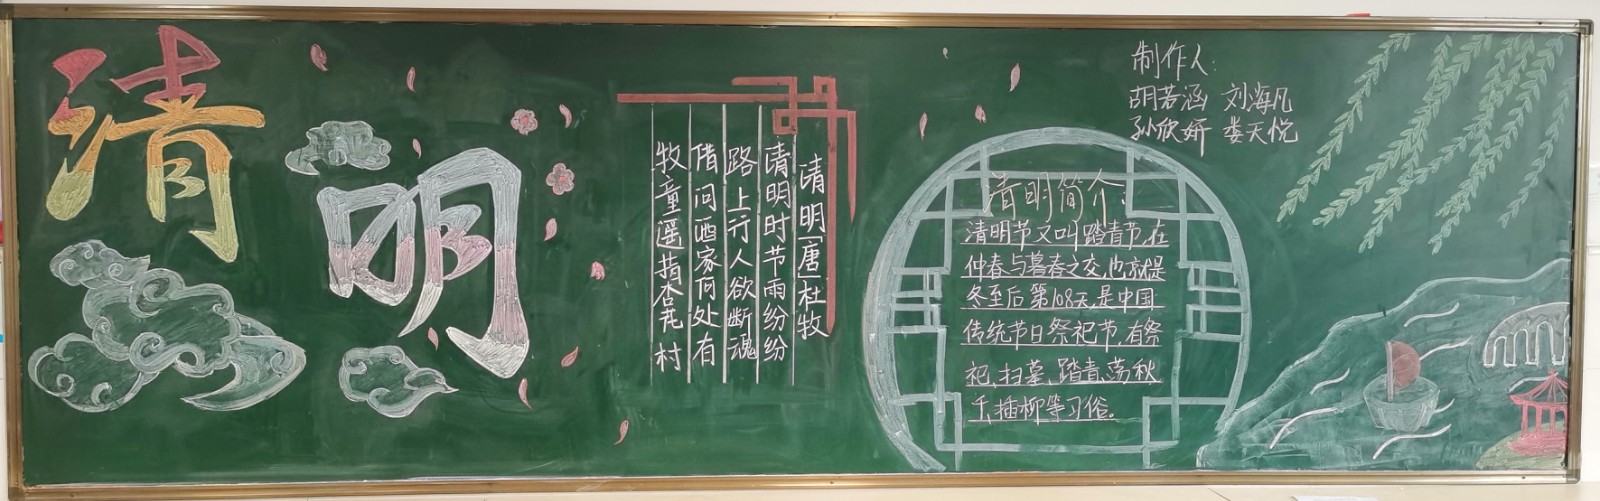 清明
清明[唐]杜牧
清明时节雨纷纷
路上行人欲断魂
借问酒家何处有
牧童遥指杏花村
清明简介:
清明节又叫踏青节,在
仲春与暮春之交,也就是
冬至后第108天,是中国
传统节日祭祀节,有祭
祀、扫墓、踏青、荡秋
千、插柳等习俗。
制作人:
胡若涵 刘海凡
孙欣妍 娄天悦